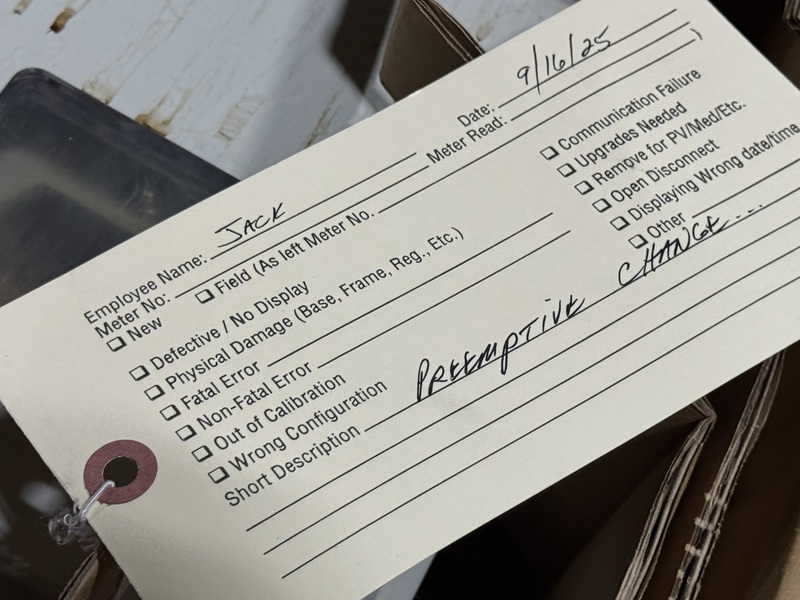 Date: 9/16/25
Employee Name: JACK
Meter Read:
Meter No:
)
❑ New ❑ Field (As left Meter No.
❑ Defective / No Display
❑ Physical Damage (Base, Frame, Reg., Etc.)
❑ Fatal Error
❑ Non-Fatal Error
❑ Out of Calibration
❑ Wrong Configuration
❑ Communication Failure
❑ Upgrades Needed
❑ Remove for PV/Med/Etc.
❑ Open Disconnect
❑ Displaying Wrong date/time
❑ Other
Short Description PREEMPTIVE CHANGE...